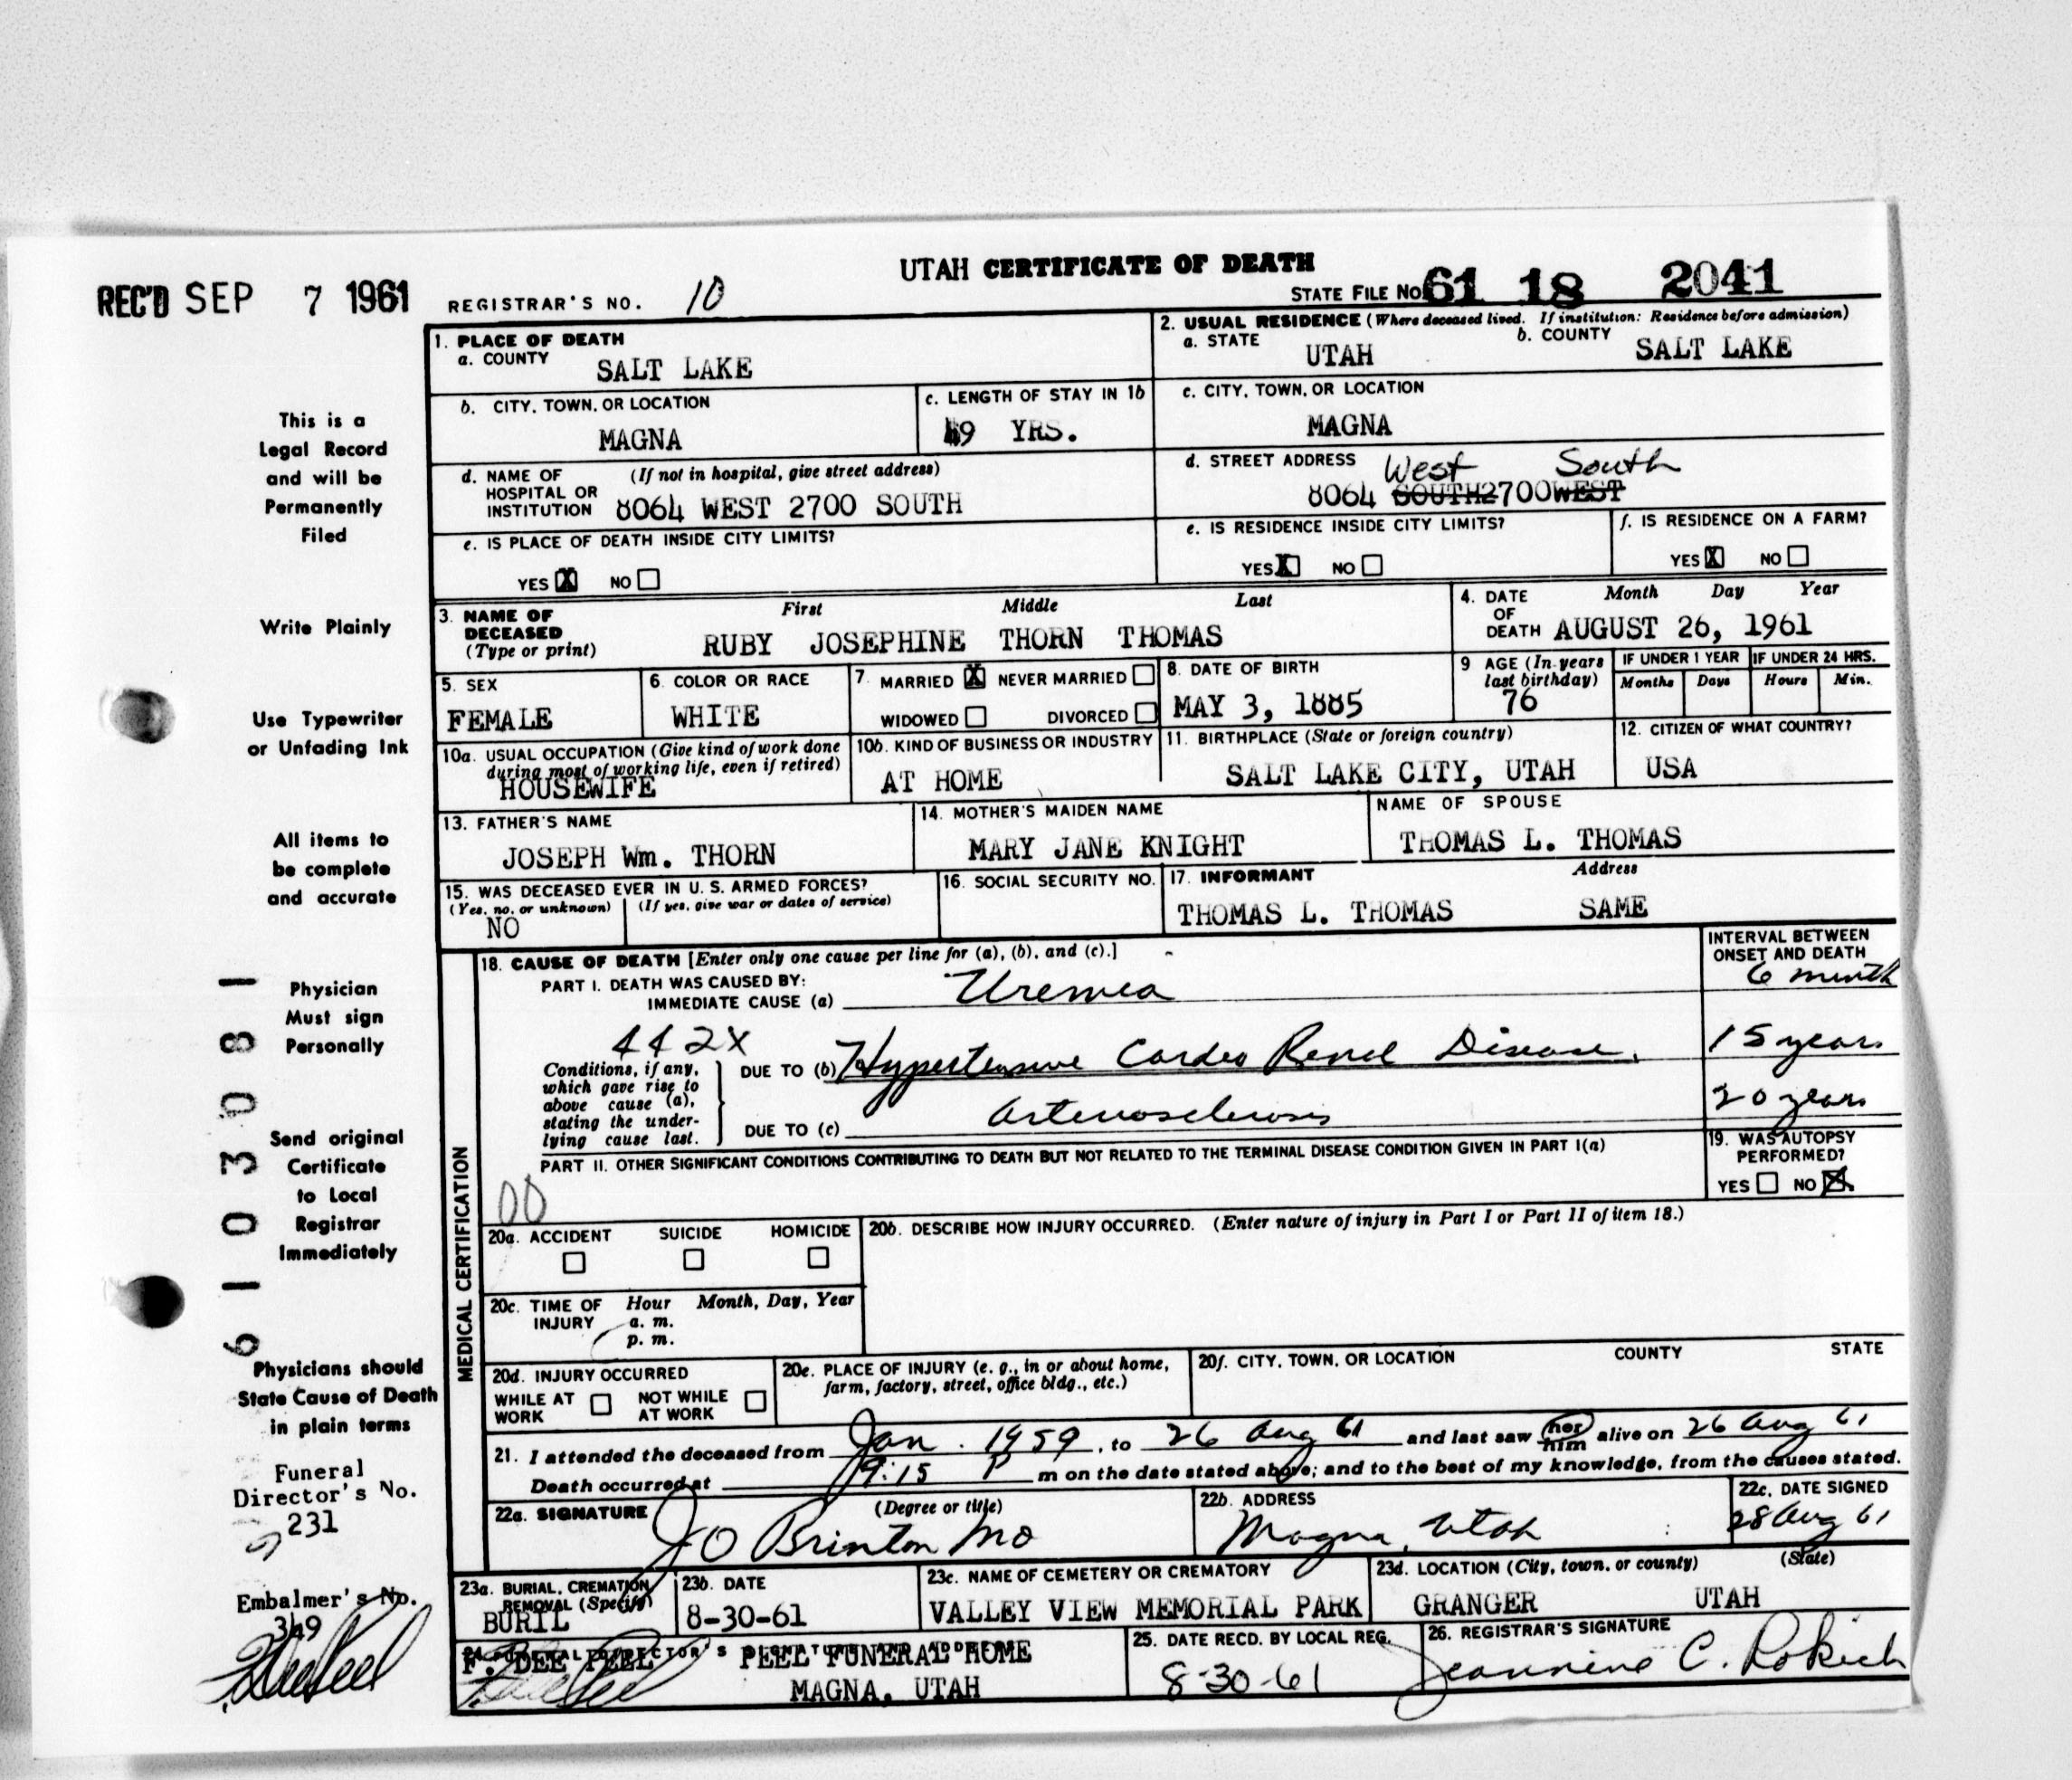 UTAH CERTIFICATE OF DEATH
REC'D SEP 7 1961
REGISTRAR'S NO. 10
STATE FILE NO. 61 18 2041
1. PLACE OF DEATH
a. COUNTY SALT LAKE
2. USUAL RESIDENCE (Where deceased lived. If institution: Residence before admission)
a. STATE UTAH b. COUNTY SALT LAKE
b. CITY, TOWN, OR LOCATION MAGNA
c. LENGTH OF STAY IN 1b 49 YRS.
c. CITY, TOWN, OR LOCATION MAGNA
d. NAME OF HOSPITAL OR INSTITUTION (If not in hospital, give street address)
8064 WEST 2700 SOUTH
d. STREET ADDRESS West South
8064 SOUTH2700WEST
e. IS PLACE OF DEATH INSIDE CITY LIMITS?
YES X NO
e. IS RESIDENCE INSIDE CITY LIMITS?
YES X NO
f. IS RESIDENCE ON A FARM?
YES X NO
3. NAME OF DECEASED (Type or print)
First Middle Last
RUBY JOSEPHINE THORN THOMAS
4. DATE OF DEATH Month Day Year
AUGUST 26, 1961
5. SEX
FEMALE
6. COLOR OR RACE
WHITE
7. MARRIED X NEVER MARRIED
WIDOWED DIVORCED
8. DATE OF BIRTH
MAY 3, 1885
9 AGE (In years last birthday)
76
IF UNDER 1 YEAR
Months Days
IF UNDER 24 HRS.
Hours Min.
10a. USUAL OCCUPATION (Give kind of work done during most of working life, even if retired)
HOUSEWIFE
10b. KIND OF BUSINESS OR INDUSTRY
AT HOME
11. BIRTHPLACE (State or foreign country)
SALT LAKE CITY, UTAH
12. CITIZEN OF WHAT COUNTRY?
USA
13. FATHER'S NAME
JOSEPH Wm. THORN
14. MOTHER'S MAIDEN NAME
MARY JANE KNIGHT
NAME OF SPOUSE
THOMAS L. THOMAS
15. WAS DECEASED EVER IN U. S. ARMED FORCES?
(Yes, no, or unknown) (If yes, give war or dates of service)
NO
16. SOCIAL SECURITY NO.
17. INFORMANT Address
THOMAS L. THOMAS SAME
MEDICAL CERTIFICATION
18. CAUSE OF DEATH [Enter only one cause per line for (a), (b), and (c).]
INTERVAL BETWEEN ONSET AND DEATH
PART I. DEATH WAS CAUSED BY:
IMMEDIATE CAUSE (a) Uremia 6 month
442X
Conditions, if any, which gave rise to above cause (a), stating the underlying cause last.
DUE TO (b) Hypertensive Cardio Renal Disease. 15 years
DUE TO (c) Arteriosclerosis 20 years
PART II. OTHER SIGNIFICANT CONDITIONS CONTRIBUTING TO DEATH BUT NOT RELATED TO THE TERMINAL DISEASE CONDITION GIVEN IN PART I(a)
00
19. WAS AUTOPSY PERFORMED?
YES NO X
20a. ACCIDENT SUICIDE HOMICIDE
20b. DESCRIBE HOW INJURY OCCURRED. (Enter nature of injury in Part I or Part II of item 18.)
20c. TIME OF INJURY Hour Month, Day, Year
a. m.
p. m.
20d. INJURY OCCURRED
WHILE AT WORK NOT WHILE AT WORK
20e. PLACE OF INJURY (e. g., in or about home, farm, factory, street, office bldg., etc.)
20f. CITY, TOWN, OR LOCATION COUNTY STATE
21. I attended the deceased from Jan. 1959, to 26 Aug 61 and last saw her him alive on 26 Aug 61
Death occurred at 9:15 P m on the date stated above; and to the best of my knowledge, from the causes stated.
22a. SIGNATURE (Degree or title)
JO Brinton MD
22b. ADDRESS
Magna, Utah
22c. DATE SIGNED
28 Aug 61
23a. BURIAL, CREMATION, REMOVAL (Specify)
BURIL
23b. DATE
8-30-61
23c. NAME OF CEMETERY OR CREMATORY
VALLEY VIEW MEMORIAL PARK
23d. LOCATION (City, town, or county) (State)
GRANGER UTAH
F. DEE PEEL PEEL FUNERAL HOME
MAGNA, UTAH
25. DATE RECD. BY LOCAL REG.
8-30-61
26. REGISTRAR'S SIGNATURE
Jeannine C. Rokich
This is a
Legal Record
and will be
Permanently
Filed
Write Plainly
Use Typewriter
or Unfading Ink
All items to
be complete
and accurate
Physician
Must sign
Personally
Send original
Certificate
to Local
Registrar
Immediately
Physicians should
State Cause of Death
in plain terms
Funeral
Director's No.
231
Embalmer's No.
349
F Dee Peel
6103081